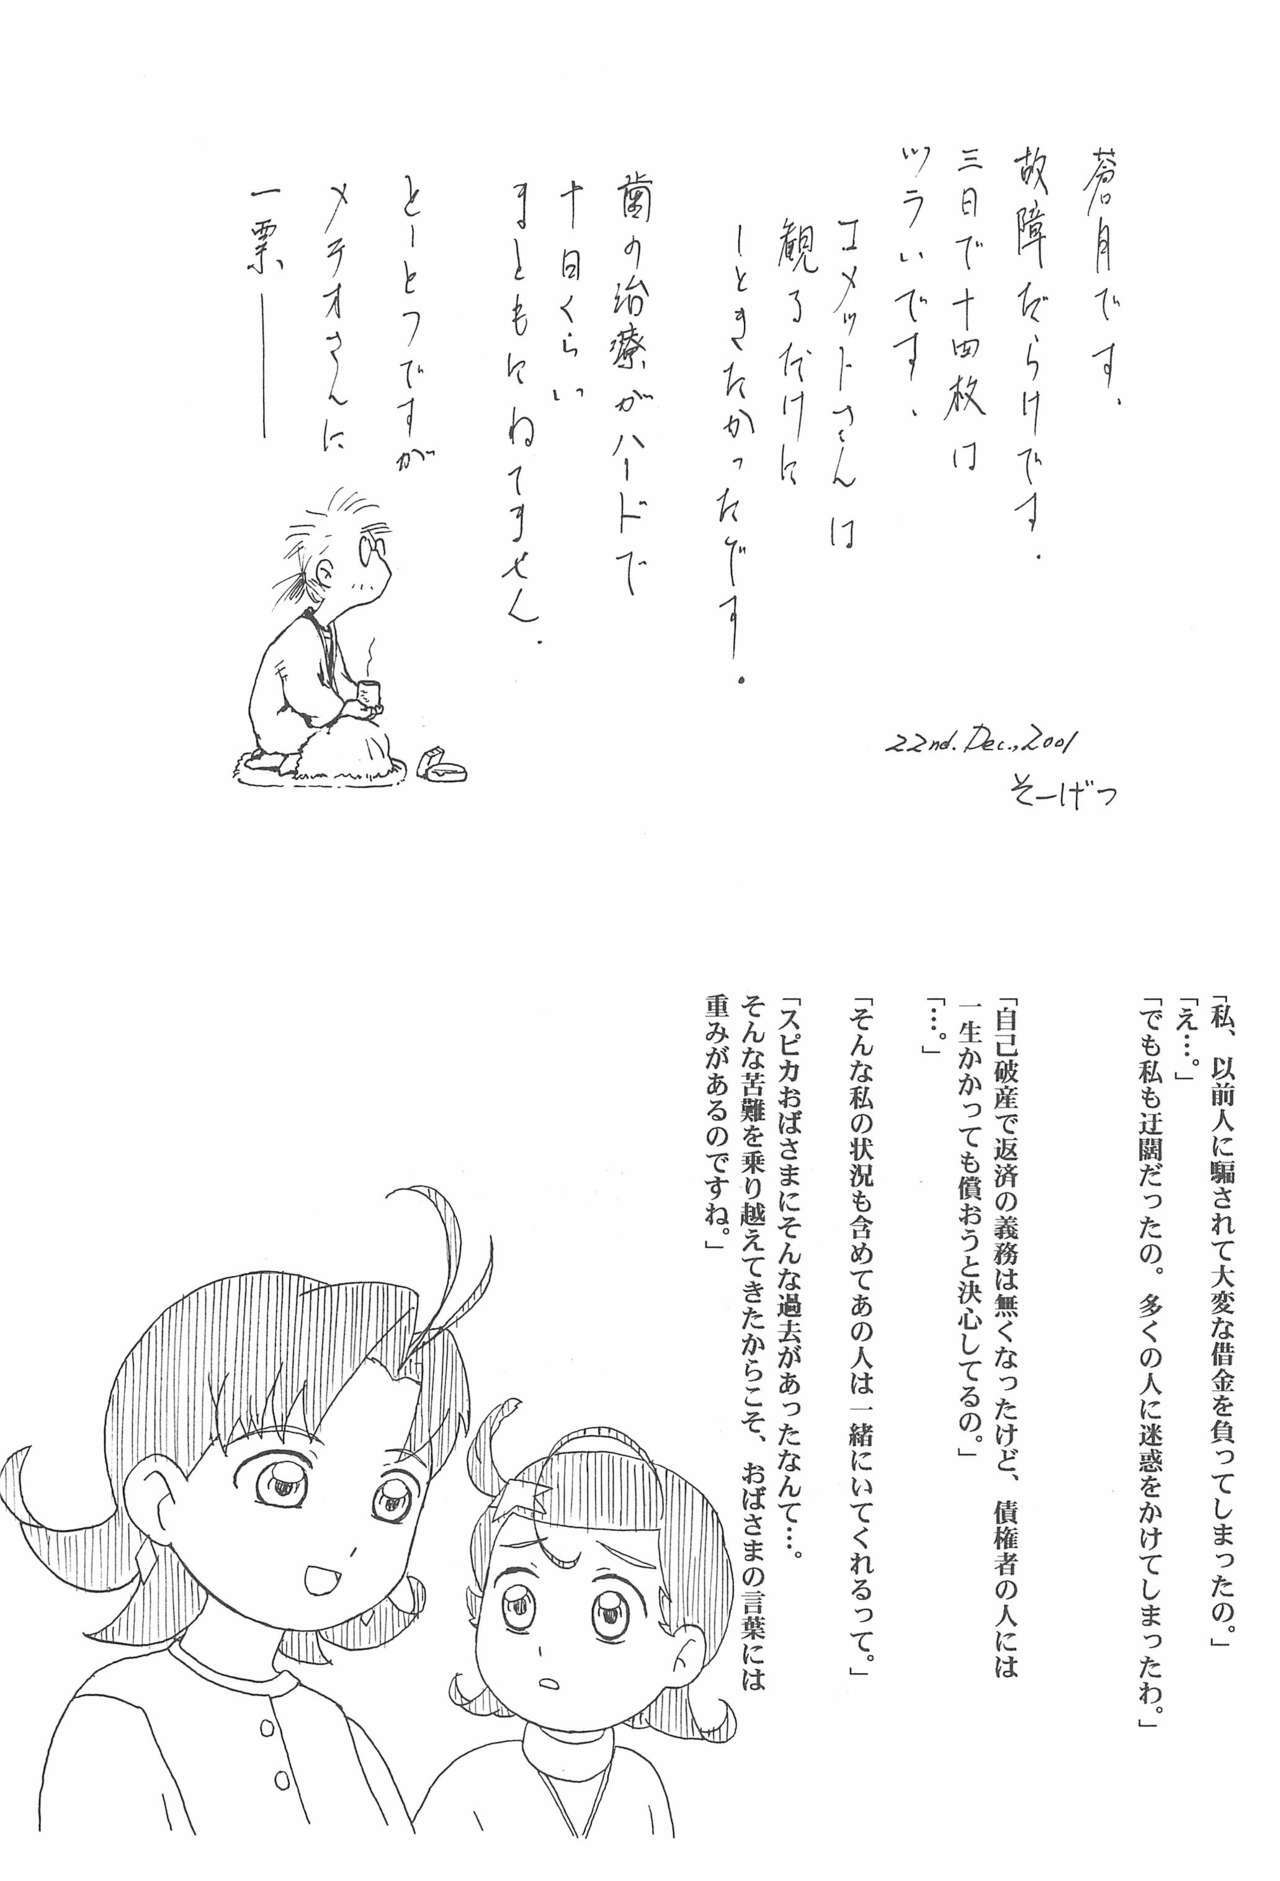 蒼月です.
故障だらけです.
三日で十四枚は
ツラいです.
コメットさんは
観るだけに
しときたかったです.
歯の治療がハードで
十日くらい
まともにねてません.
とーとつですが
メテオさんに
一票──
22nd. Dec., 2001
そーげつ
「私、以前人に騙されて大変な借金を負ってしまったの。」
「え…。」
「でも私も迂闊だったの。多くの人に迷惑をかけてしまったわ。」
「自己破産で返済の義務は無くなったけど、債権者の人には
一生かかっても償おうと決心してるの。」
「…。」
「そんな私の状況も含めてあの人は一緒にいてくれるって。」
「スピカおばさまにそんな過去があったなんて…。
そんな苦難を乗り越えてきたからこそ、おばさまの言葉には
重みがあるのですね。」